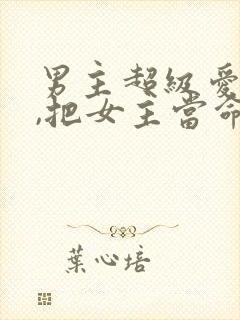 男主超級愛
,把女主當命
葉心培